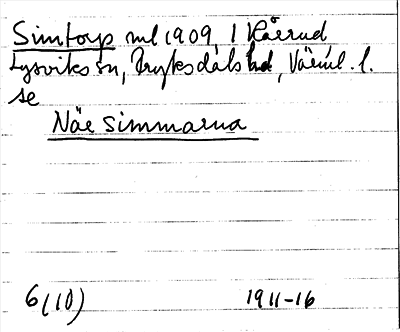 Simtorp ml 1909, 1 Kårrud
Lysviks sn, Fryksdals hd, Värml. l.
se
Näs Simmarna
6(10) 1911-16